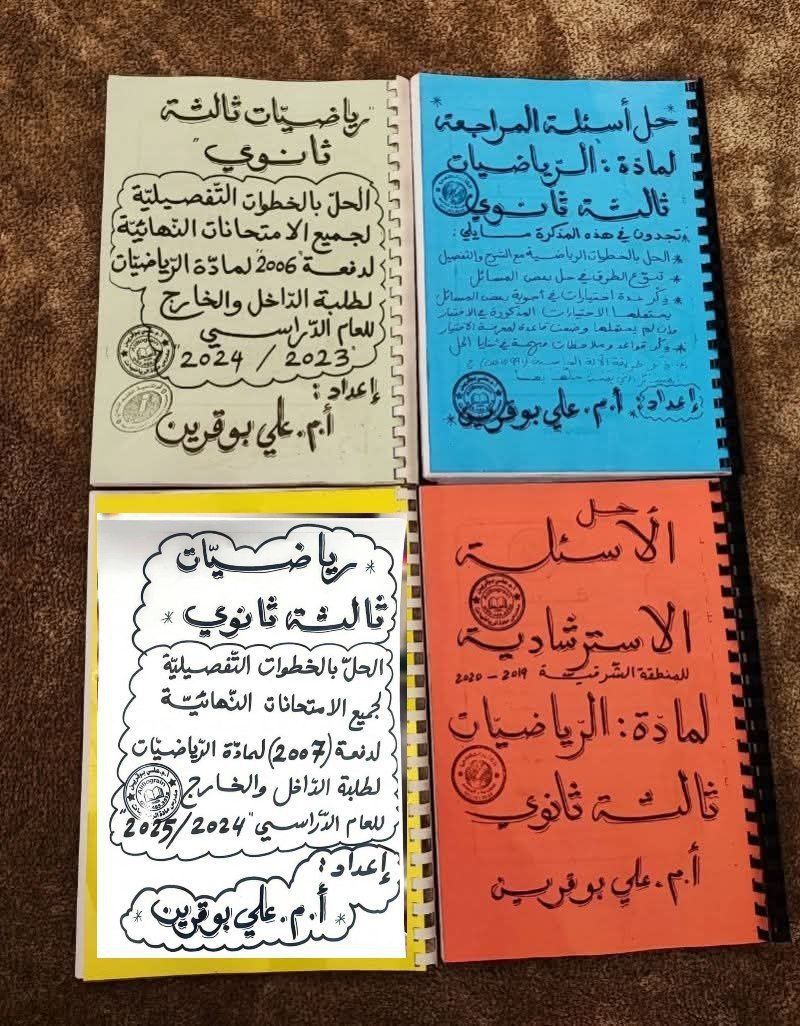 "رياضيّات ثالثة
ثانوي"
الحلّ بالخطوات التّفصيليّة
لجميع الامتحانات النّهائيّة
لدفعة "2006" لمادّة الرّياضيّات
لطلبة الدّاخل والخارج
للعام الدّراسي
"2024 / 2023"
إعداد:
أ.م. علي بوقرين
* حل أسئلة المراجعة *
لمادّة: الرّياضيات
ثالثة ثانوي
* تجدون في هذه المذكرة ما يلي:
* الحل بالخطوات الرياضية مع الشرح والتفصيل
* تنوّع الطرق في حل بعض المسائل
* ذكر عدة اختيارات في أجوبة بعض المسائل
يحتملها الاختيارات المذكورة في الاختبار
* ذكر قواعد وملاحظات مهمة في ثنايا الحل
* إعداد: أ.م. علي بوقرين *
* رياضـيّات
ثالثة ثانوي *
الحلّ بالخطوات التّفصيليّة
لجميع الامتحانات النّهائيّة
لدفعة (2007) لمادّة الرّياضيّات
لطلبة الدّاخل والخارج
للعام الدّراسي "2025/2024"
إعداد:
* أ.م. علي بوقرين *
حل
الأسئلة
الاسترشادية
للمنطقة الشرقية 2019 - 2020
لمادّة: الرّياضيّات
ثالثة ثانوي
أ.م. علي بوقرين